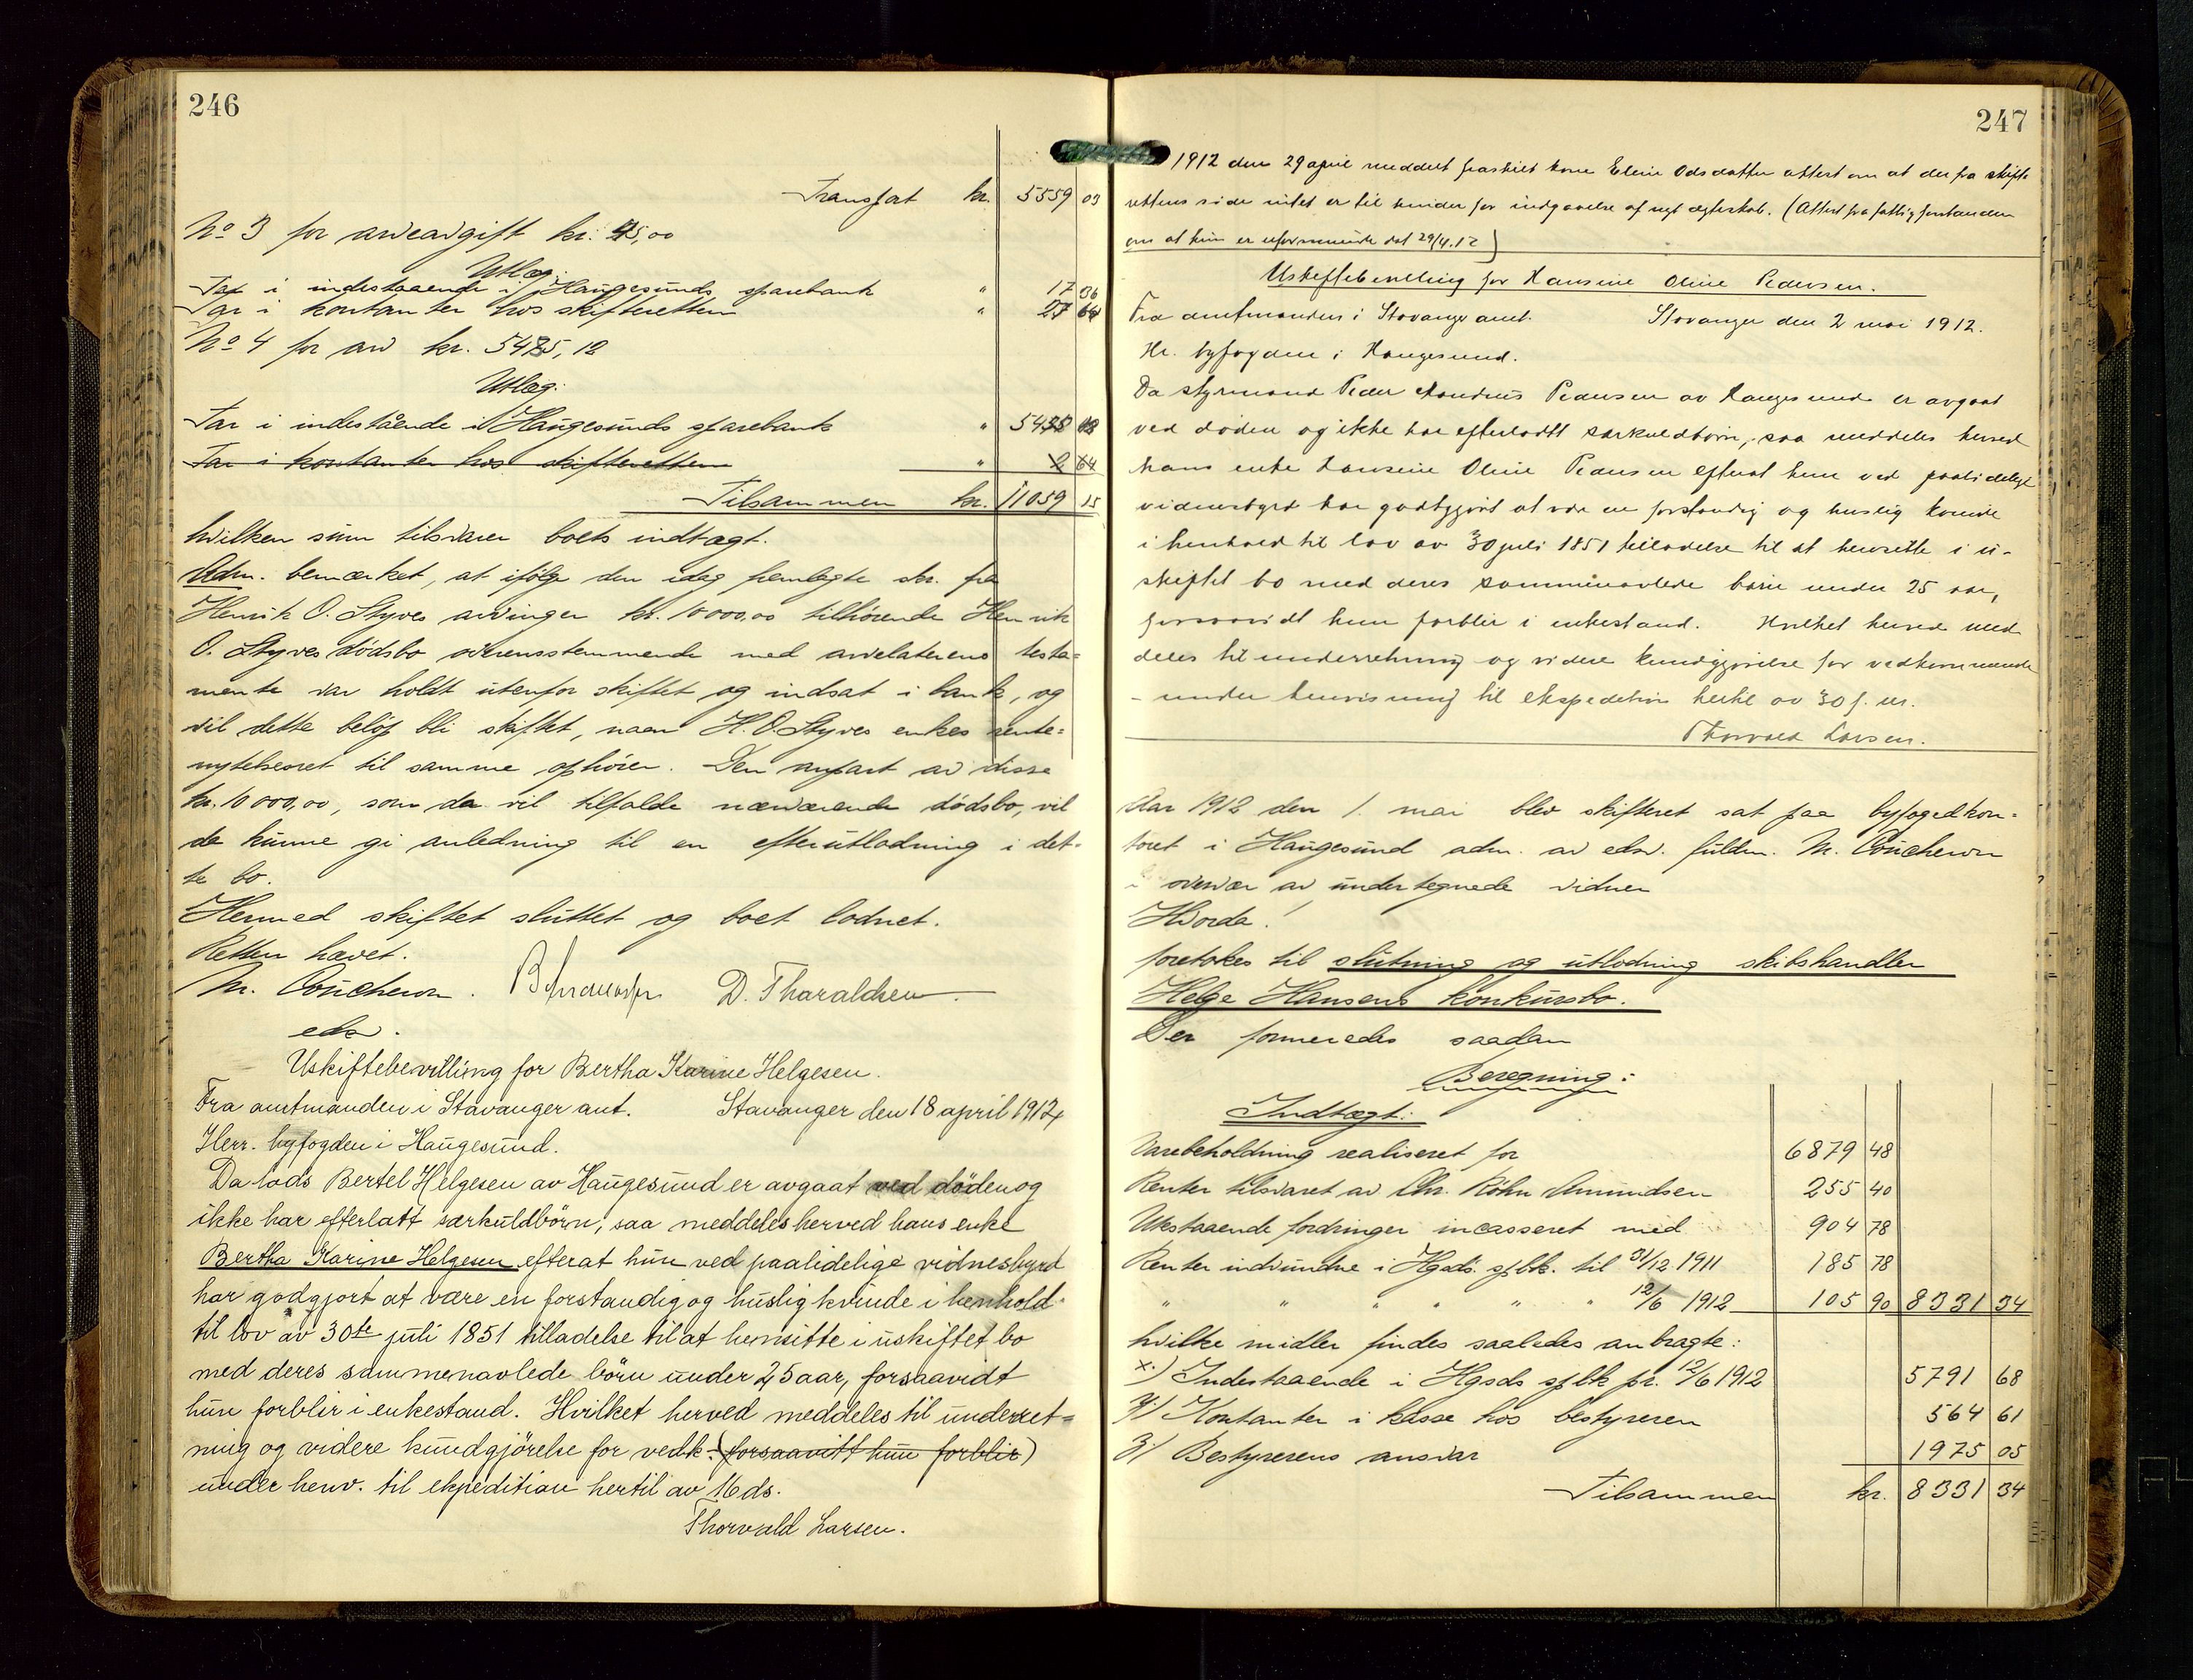 246
Transport kr. 5559 03
No 3 for arveavgift kr. 45,00
Utlæg:
Tar i indestaaende i Haugesunds sparebank " 17 36
Tar i kontanter hos skifteretten " 27 64
No 4 for arv kr. 5475,12
Utlæg:
Tar i indestående i Haugesunds sparebank "
Tar i kontanter hos skifteretten " 2 64
Tilsammen kr. 11059 15
hvilken sum tilsvarer boets indtægt.
Adm. bemærket, at ifølge den idag fremlagte skr. fra
Henrik O. Styves arvinger kr. 10000,00 tilhørende Henrik
O. Styves dødsbo overensstemmende med arvelaterens testa=
mente var holdt utenfor skiftet og indsat i bank, og
vil dette beløp bli skiftet, naar H. O. Styves enkes rente=
nytelsesret til samme ophører. Den anpart av disse
kr. 10000,00, som da vil tilfalde nærværende dødsbo, vil
da kunne gi anledning til en efterutlodning i det-
te bo.
Hermed skiftet sluttet og boet lodnet.
Retten hævet.
M. Coucheron. D. Tharaldsen.
edsv.
Uskiftebevilling for Bertha Karine Helgesen.
Fra amtmanden i Stavanger amt. Stavanger den 18 april 1912,
Herr. byfogden i Haugesund.
Da lods Bertel Helgesen av Haugesund er avgaat ved döden og
ikke har efterlatt særkuldbörn, saa meddeles herved hans enke
Bertha Karine Helgesen efterat hun ved paalidelige vidnesbyrd
har godgjort at være en forstandig og huslig kvinde i henhold
til lov av 30te juli 1851 tilladelse til at hensitte i uskiftet bo
med deres sammenavlede börn under 25 aar, forsaavidt
hun forblir i enkestand. Hvilket herved meddeles til underret=
ning og videre kundgjörelse for vedk. (forsaavitt hun forblir)
under henv. til ekpedition hertil av 16 ds.
Thorvald Larsen.
247
1912 den 29 april meddelt fraskilt kone Eline Odsdatter attest om at der fra skifte
rettens side intet er til hinder for indgaaelse af nyt ægteskab. (Attest fra fattigforstanderen
om at hun er uformuende dat 29/4.12)
Uskiftebevilling for Hansine Oline Pedersen.
Fra amtmanden i Stavanger amt. Stavanger den 2 mai 1912.
Hr. byfogden i Haugesund.
Da styrmand Peder Andreas Pedersen av Haugesund er avgaat
ved døden og ikke har efterladt særkuldbørn, saa meddeles herved
hans enke Hansine Oline Pedersen efterat hun ved paalidelige
vidnesbyrd har godtgjort at være en forstandig og huslig kvinde
i henhold til lov av 30 juli 1851 tilladelse til at hensitte i u-
skiftet bo med deres sammenavlede børn under 25 aar,
forsaavidt hun forblir i enkestand. Hvilket herved med
deles til underretning og videre kundgjørelse for vedkommende
- under henvisning til ekspedition hertil av 30 f. m.
Thorvald Larsen.
Aar 1912 den 1. mai blev skifteret sat paa byfogedkon-
toret i Haugesund adm. av edsv. fuldm. M. Coucheron
i overvær av undertegnede vidner
Hvorda!
foretokes til slutning og utlodning skibshandler
Helge Hansens konkursbo.
Der formeredes saadan
Beregning:
Indtægt:
Varebeholdning realiseret for 6879 48
Renter tilsvaret av Chr. Køhn Amundsen 255 40
Utestaaende fordringer incasseret med 904 78
Renter indvundne i Hgsds. spbk. til 31/12 1911 185 78
" " " " " " 12/6 1912 105 90 8331 34
hvilke midler findes saaledes anbragte:
x.) Indestaaende i Hgsds spbk pr. 12/6 1912 5791 68
y.) Kontanter i kasse hos bestyreren 564 61
z.) Bestyrerens ansvar 1975 05
Tilsammen kr. 8331 34